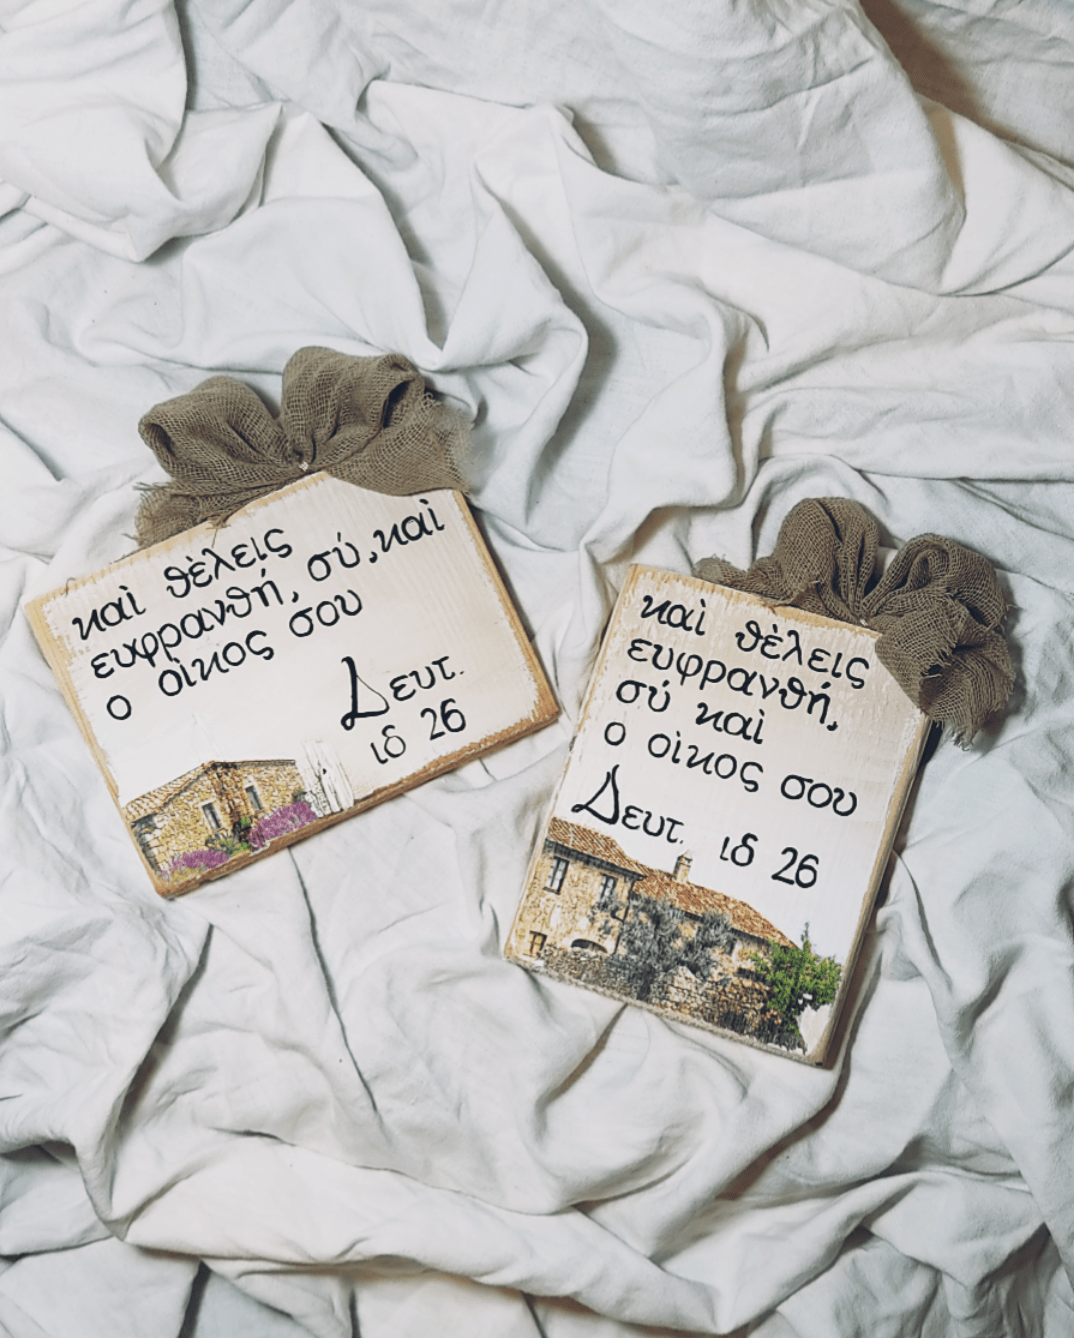 καὶ θέλεις
ευφρανθή, σύ, καὶ
ο οίκος σου
Δευτ.
ιδ 26
καὶ θέλεις
ευφρανθή,
σύ καὶ
ο οίκος σου
Δευτ. ιδ 26